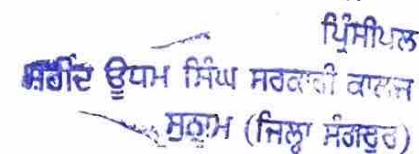 ਪ੍ਰਿੰਸੀਪਲ
ਸ਼ਹੀਦ ਊਧਮ ਸਿੰਘ ਸਰਕਾਰੀ ਕਾਲਜ
ਸੁਨਾਮ (ਜਿਲ੍ਹਾ ਸੰਗਰੂਰ)